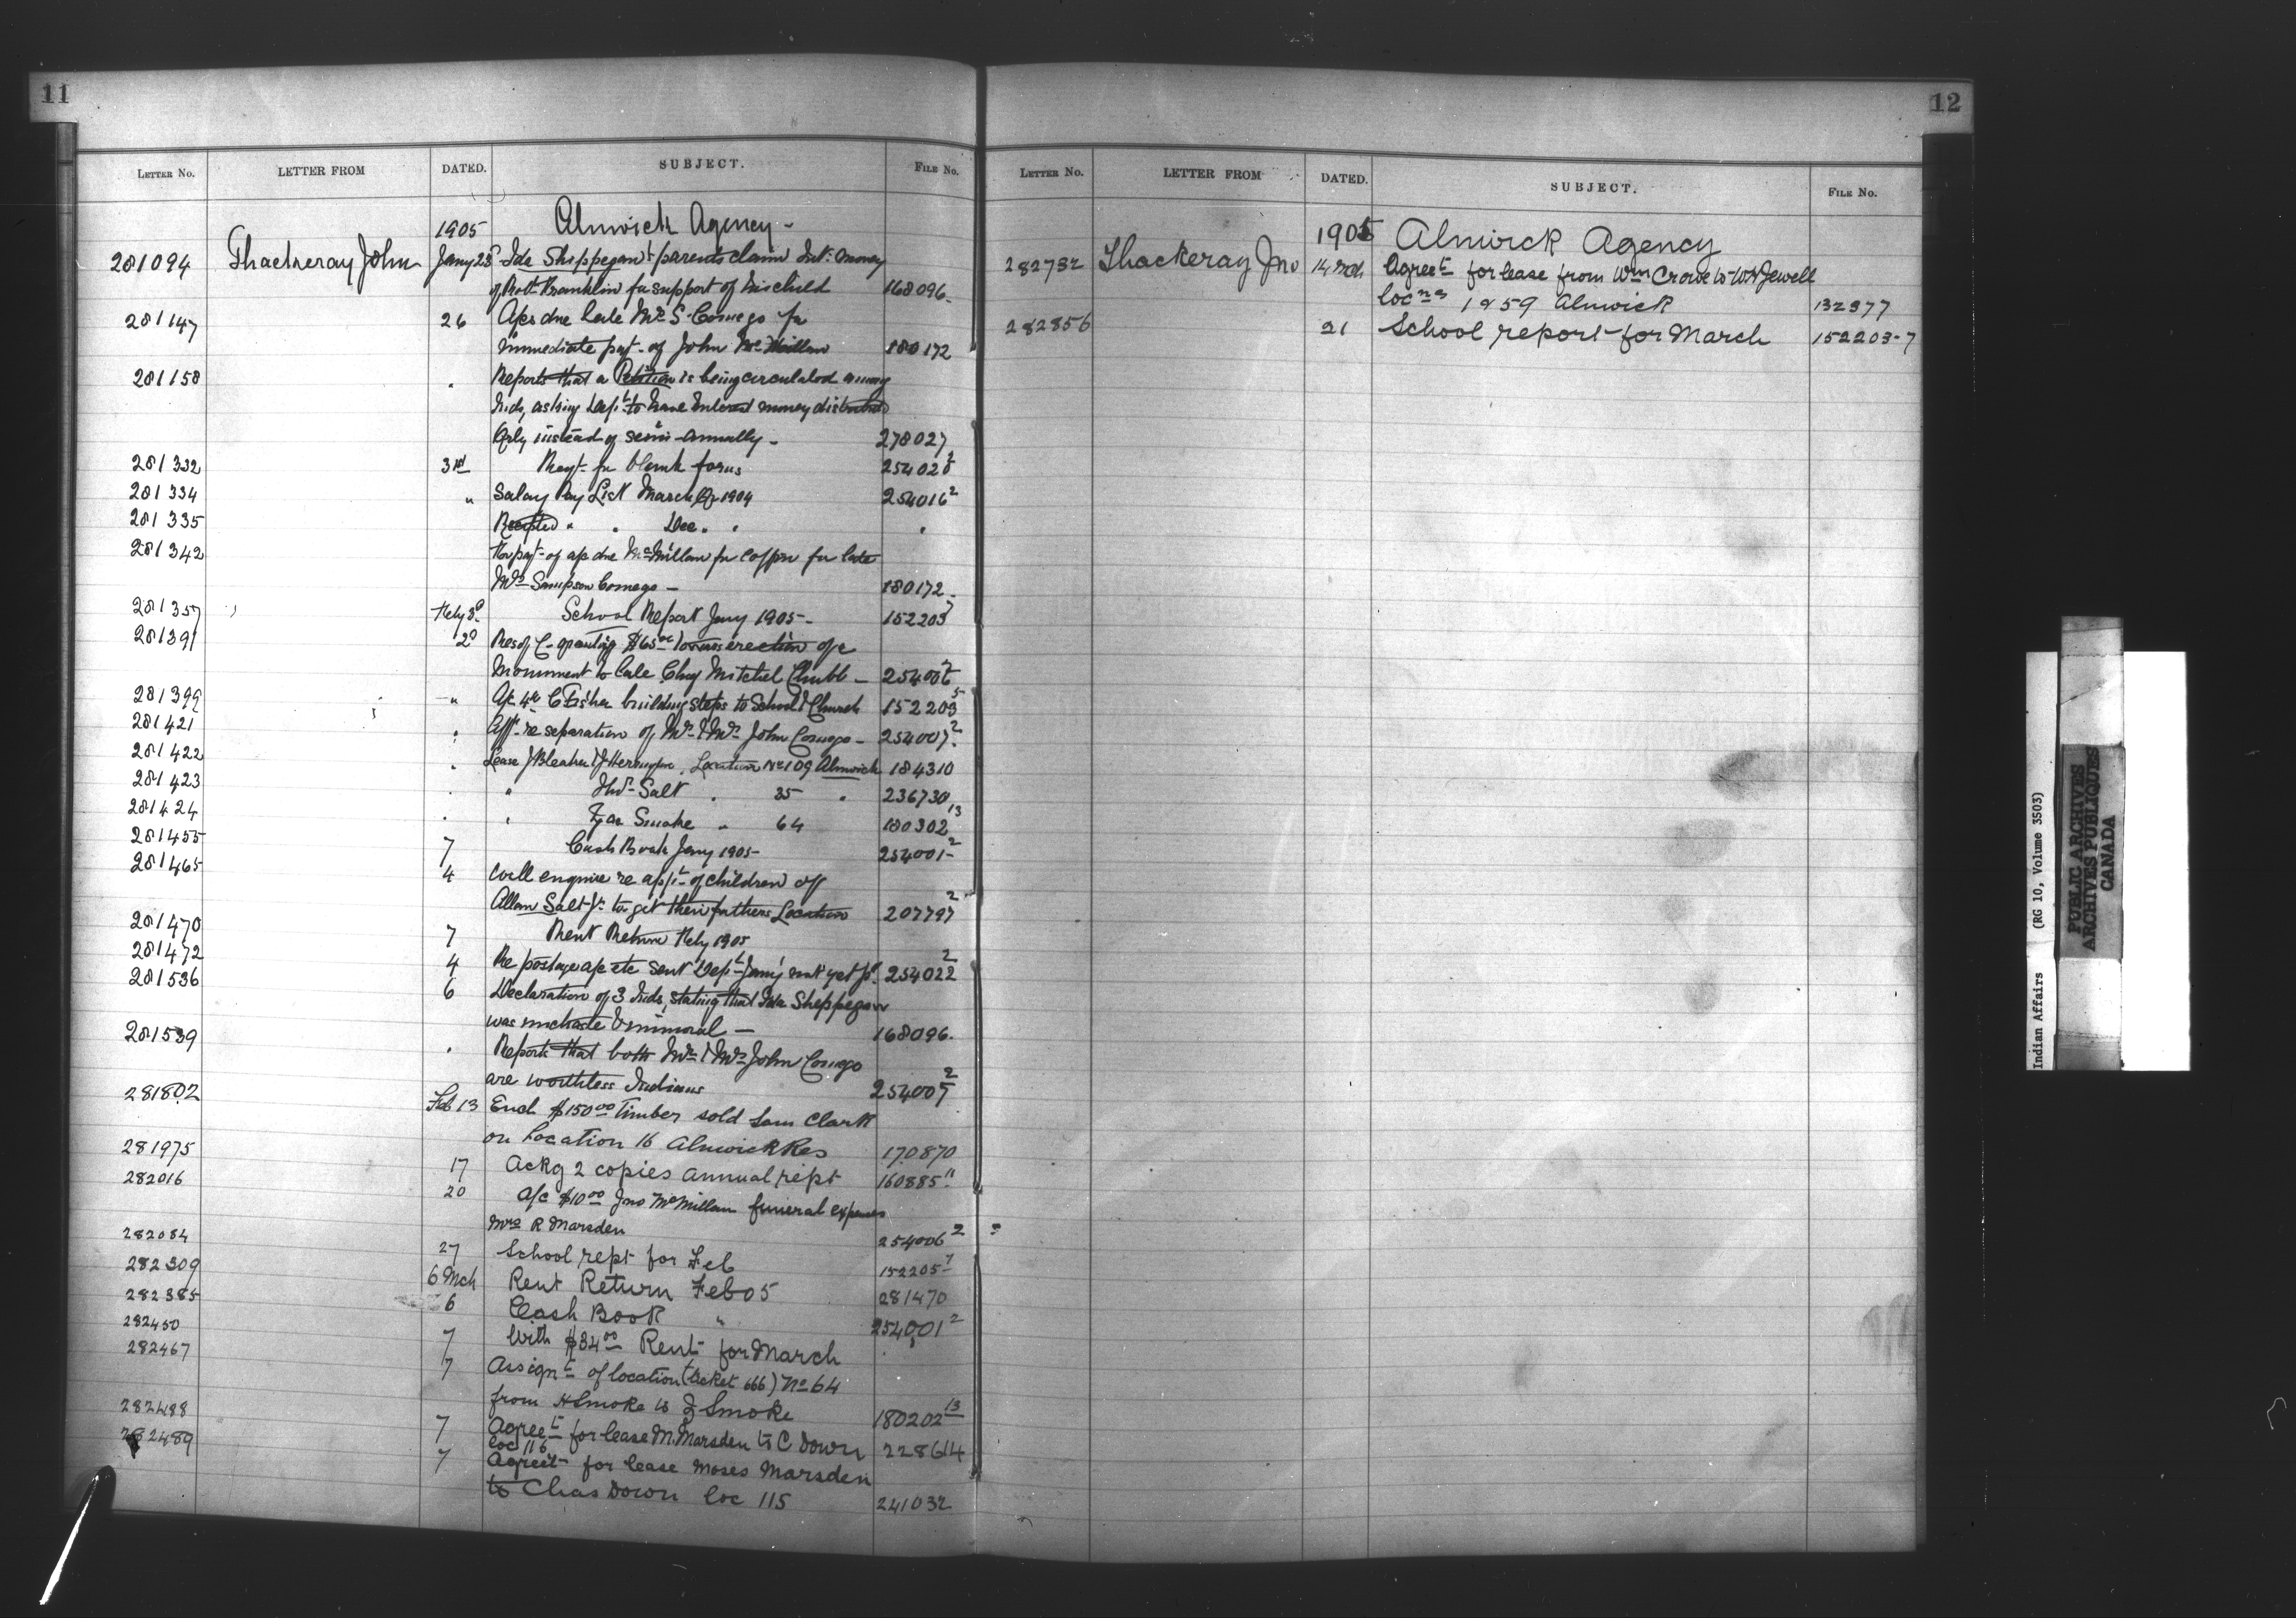 11
LETTER No. LETTER FROM DATED. SUBJECT. FILE No.
1905 Alnwick Agency -
281094 Thackeray John Jany 25 Ida Shippegaw & parents claim Int. money
of Robt Franklin for support of his child 168096.
281147 26 A/cs due late Mrs S. Comego for
immediate payt. of John McMillan 180172
281158 " Reports that a Petition is being circulated among
Inds, asking Dept to have Interest money distributed
Qrly instead of semi-annually - 278027
281332 3rd Reqt. for blank forms 254028 2
281334 " Salary Pay List March Qr 1904 254016 2
281335 Receipted " " Dec. " "
281342 For payt- of a/c due McMillan for coffin for late
Mrs Sampson Comego - 180172.
281357 Feby 3rd School Report Jany 1905 - 152203 7
281391 2nd Res of C- granting $65.00 towards erection of a
Monument to late Chas Mitchel Chubb - 254006 2
281399 " A/c C Fisher building steps to School & Church 152203 5
281421 " Aff. re separation of Mr & Mrs John Comego - 254007 2
281422 " Lease J Bleaker & J Herrington, Location No 109 Alnwick 184310
281423 " " Salt " 35 " 236730
281424 " " Smoke " 64 180302 13
281455 7 Cash Book Jany 1905 - 254001 2
281465 4 Will enquire re applt of children of
Allan Salt Jr. to get their fathers Location 207797 2
281470 7 Rent Return Feby 1905
281472 4 Re postage a/c etc sent Dept Jany not yet pd. 254022 2
281536 6 Declaration of 3 Inds, stating that Ida Sheppegaw
was unchaste & immoral - 168096.
281539 " Reports that both Mr & Mrs John Comego
are worthless Indians 254007 2
281802 Feb 13 Encl $150.00 Timber sold Sam Clark
on Location 16 Alnwick Res 170870
281975 17 Ackg 2 copies annual rept 160885 11
282016 20 a/c $10.00 Jno McMillan funeral expenses
Mrs R Marsden 254006 2
282084 27 School rept for Feb 152205-7
282309 6 Mch Rent Return Feb 05 281470
282385 6 Cash Book " 254001 2
282450 7 With $34.00 Rent for March "
282467 7 Assignt of location (ticket 666) No 64
from H Smoke to Z Smoke 180202 13
282488 7 Agreet for lease M. Marsden to C Down 228614
loc 116
282489 7 Agreet for lease Moses Marsden
to Chas Down loc 115 241032
12
LETTER No. LETTER FROM DATED. SUBJECT. FILE No.
1905 Alnwick Agency
282732 Thackeray Jno 14 Mch Agreet for lease from Wm Crowe to WH Jewell
locns 1 & 59 Alnwick 132377
282856 21 School report for March 152203-7
Indian Affairs (RG 10, Volume 3503)
PUBLIC ARCHIVES
ARCHIVES PUBLIQUES
CANADA